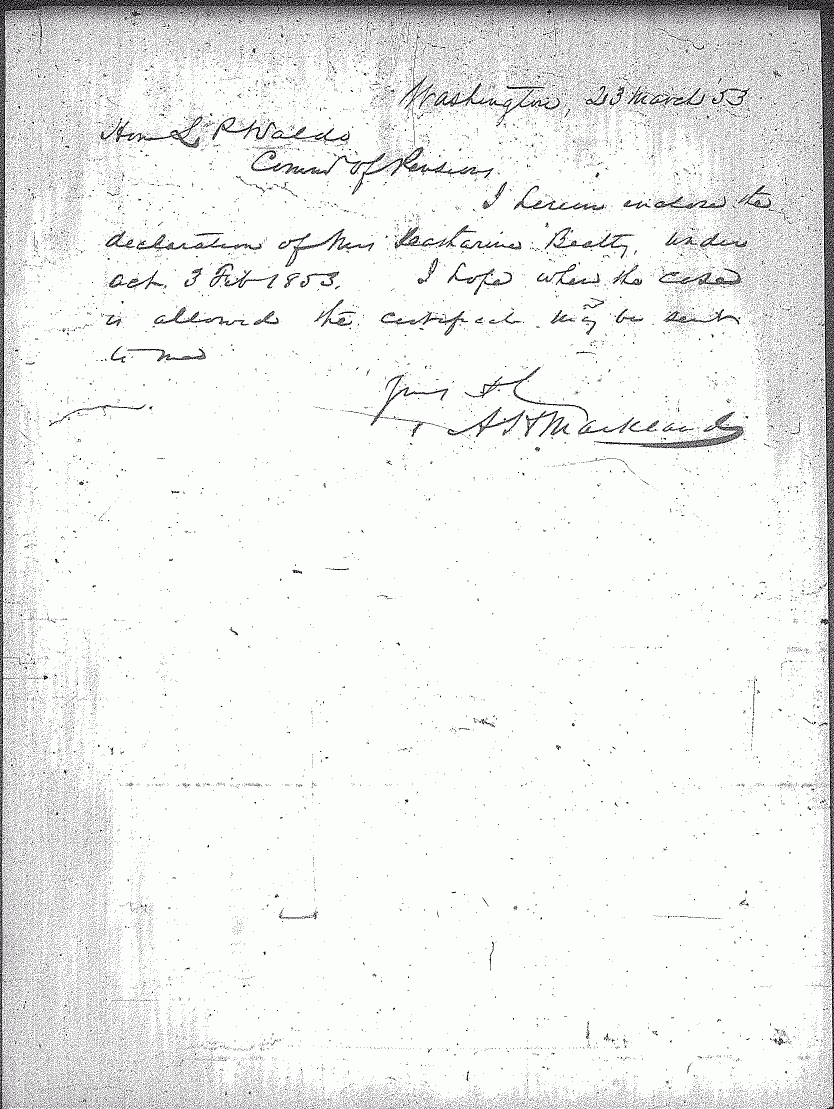 Washington, 23 March '53
Hon L. P. Waldo
Commr of Pensions
I herein enclose the
declaration of Mrs Catharine Beatty, under
act, 3 Feb 1853. I hope when the case
is allowed the certificate may be sent
to me
Yours &c
A H Markland